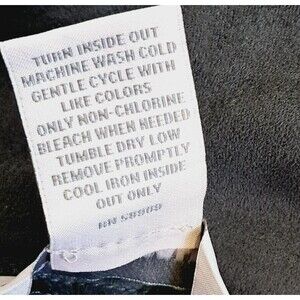 TURN INSIDE OUT
MACHINE WASH COLD
GENTLE CYCLE WITH
LIKE COLORS
ONLY NON-CHLORINE
BLEACH WHEN NEEDED
TUMBLE DRY LOW
REMOVE PROMPTLY
COOL IRON INSIDE
OUT ONLY
RN